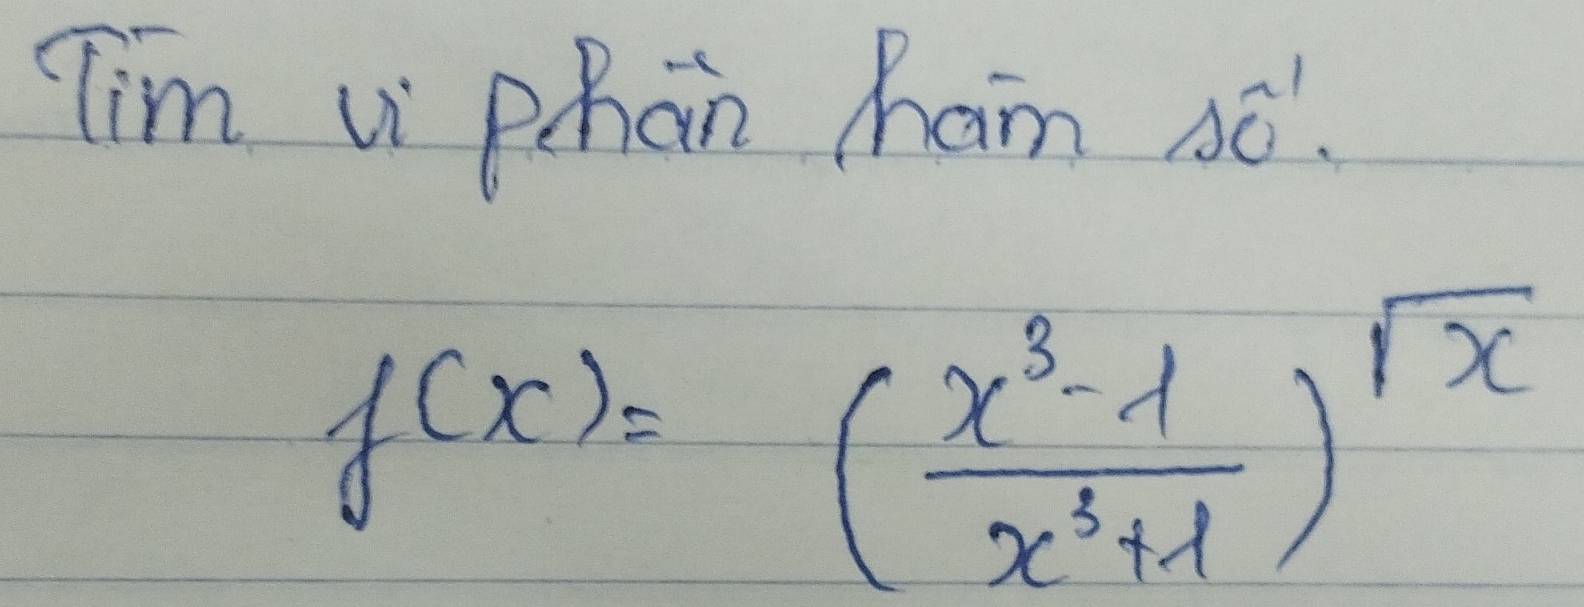 Tìm vi phân hàm số.
f(x) = (\frac{x^3 - 1}{x^3 + 1})^{\sqrt{x}}